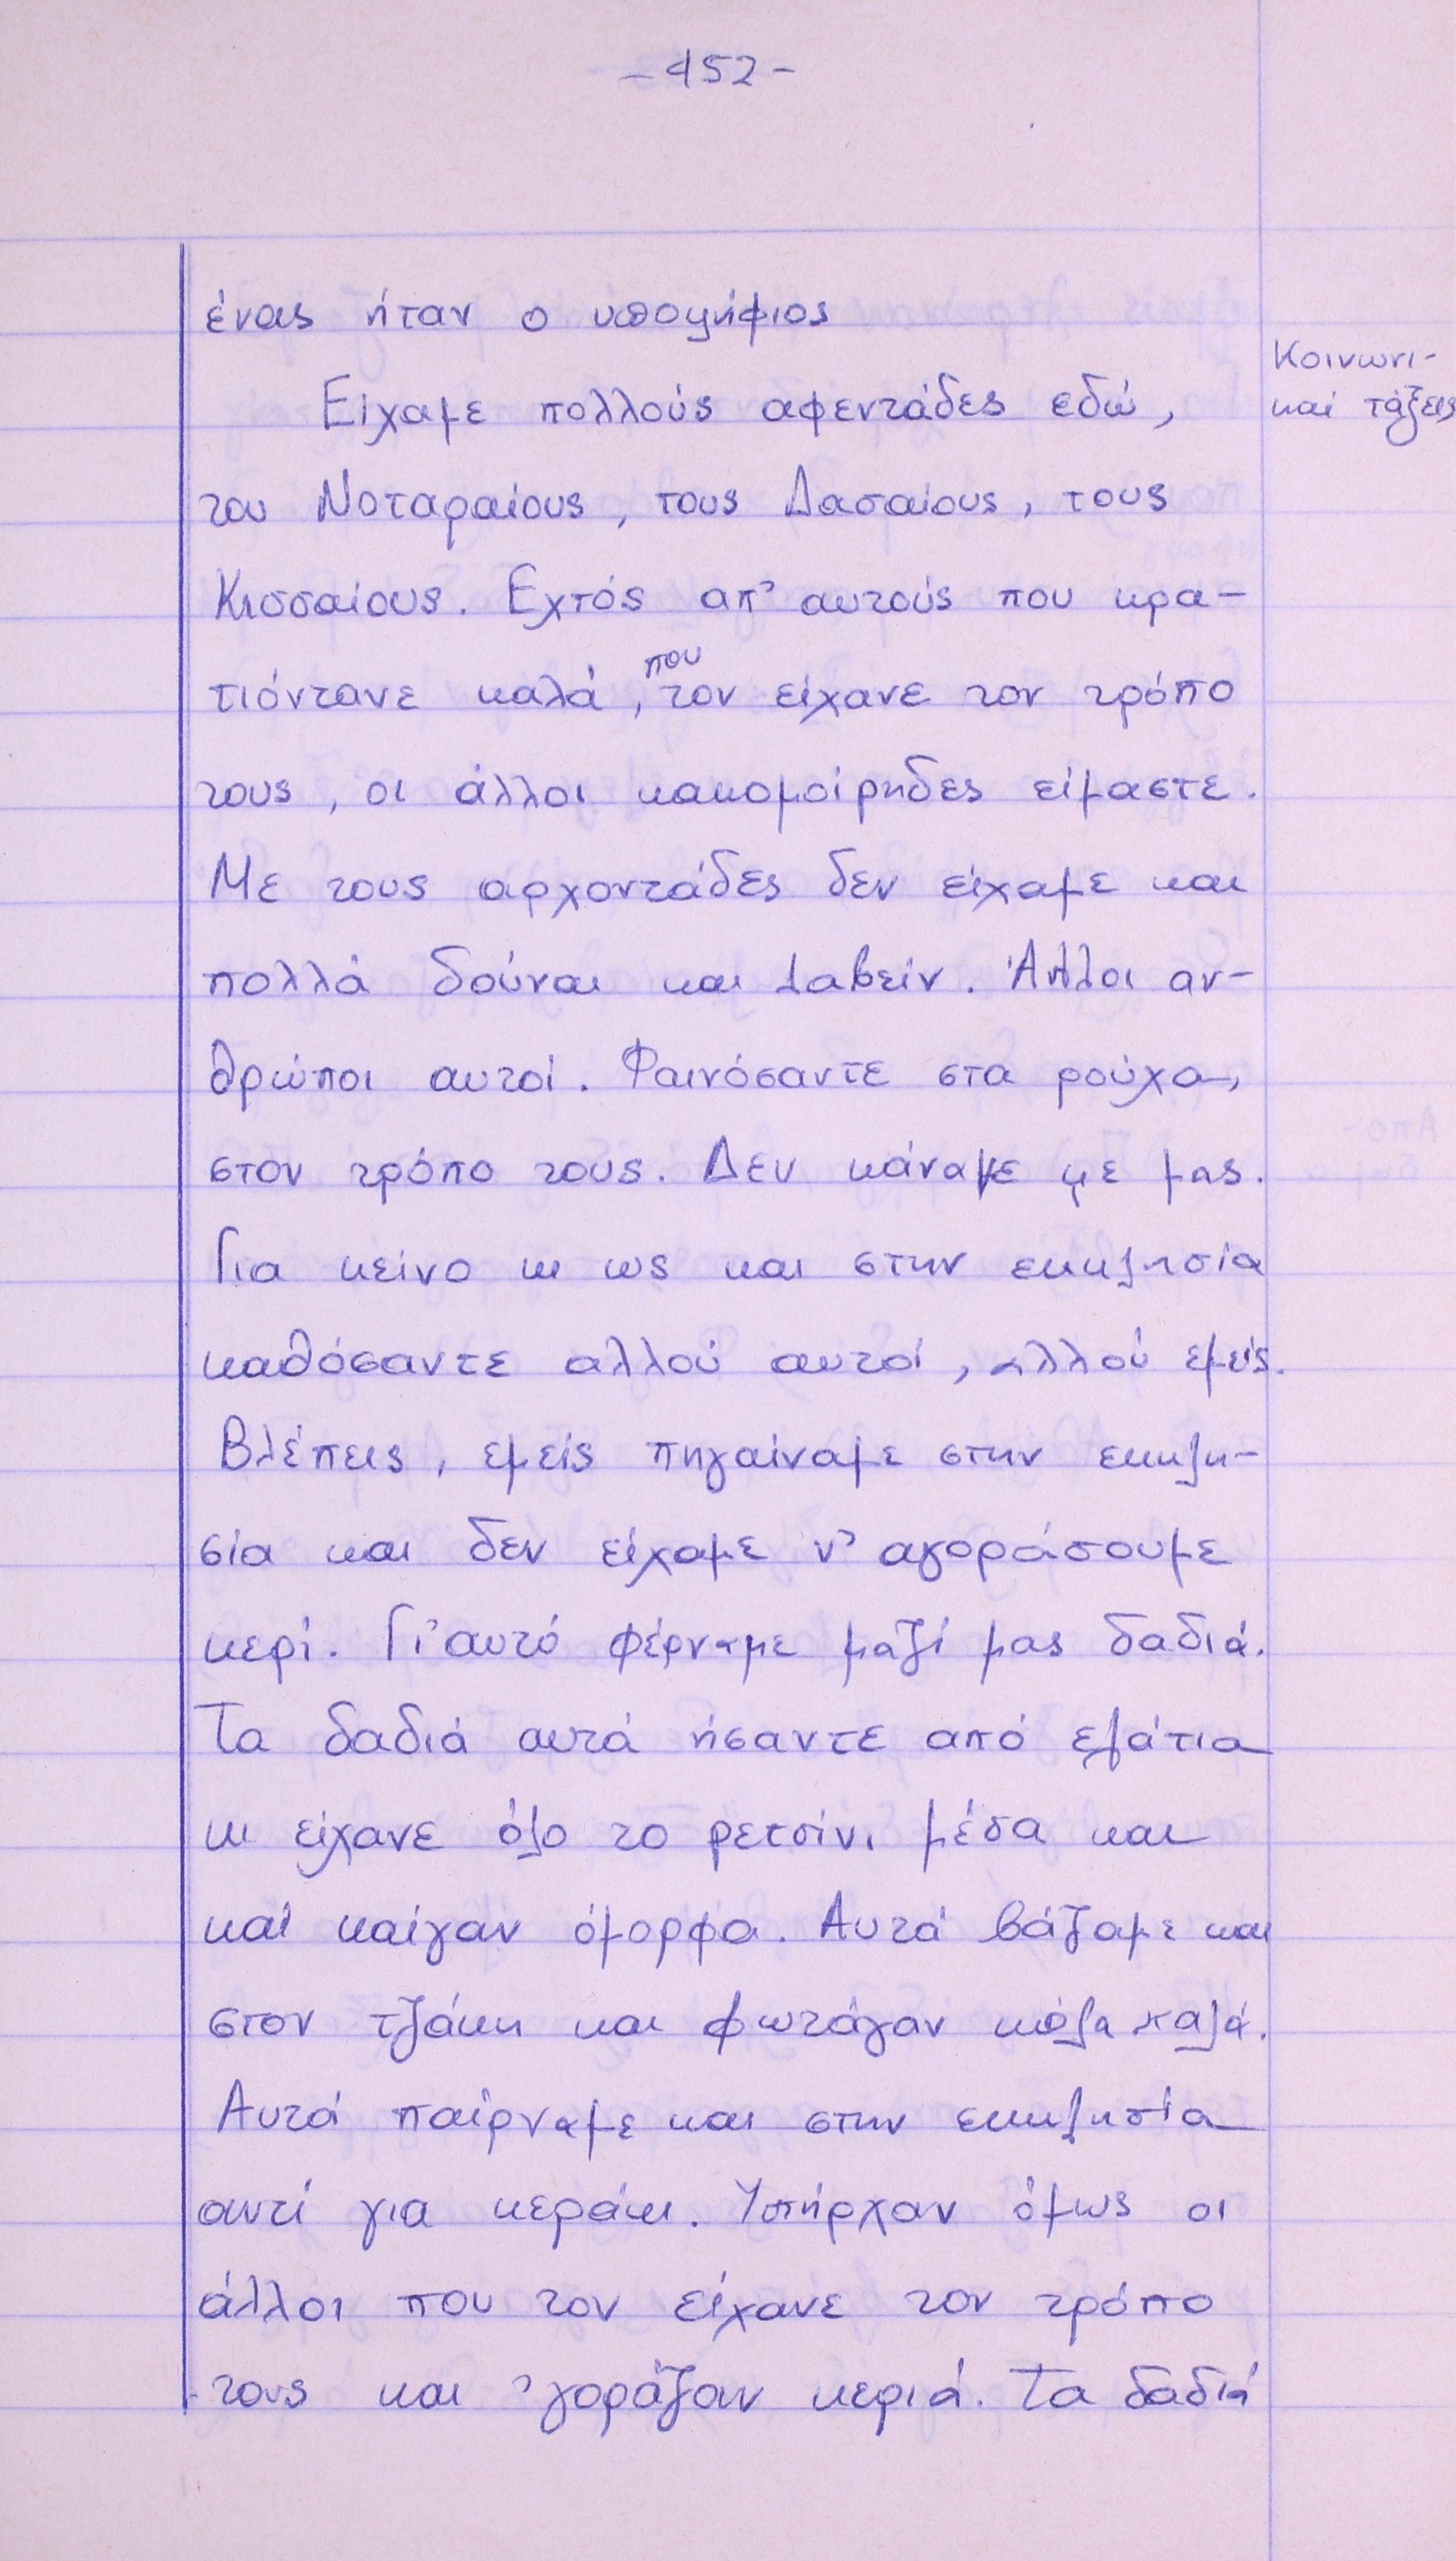 -452-
ένας ήταν ο υποψήφιος
Κοινωνι-
καί τάξεις
Είχαμε πολλούς αφεντάδες εδώ,
του Νοταραίους, τους Δασαίους, τους
Κισσαίους. Εχτός απ' αυτούς που κρα-
τιόντανε καλά, που τον είχανε τον τρόπο
τους, οι άλλοι κακομοίρηδες είμαστε.
Με τους αρχοντάδες δεν είχαμε και
πολλά δούναι και λαβείν. Άλλοι αν-
θρώποι αυτοί. Φαινόσαντε στα ρούχα,
στον τρόπο τους. Δεν κάναμε με μας.
Για κείνο κι ως και στην εκκλησία
καθόσαντε αλλού αυτοί, αλλού εμείς.
Βλέπεις, εμείς πηγαίναμε στην εκκλη-
σία και δεν είχαμε ν' αγοράσουμε
κερί. Γι' αυτό φέρναμε μαζί μας δαδιά.
Τα δαδιά αυτά ήσαντε από ελάτια
κι είχανε όλο το ρετσίνι μέσα και
καί καίγαν όμορφα. Αυτά βάζαμε και
στον τζάκη και φωτάγαν κάλα καλά.
Αυτά παίρναμε και στην εκκλησία
αντί για κεράκι. Υπήρχαν όμως οι
άλλοι που τον είχανε τον τρόπο
τους και 'γοράζαν κεριά. Τα δαδιά